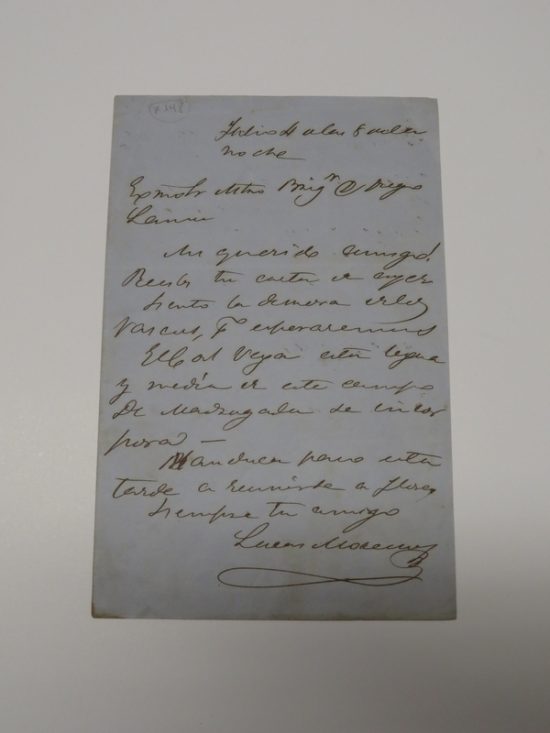 Julio 4 a las 8 de la
noche
Exmo Sr Mtro Brigr D Diego
Lamas
Mi querido amigo.
Recibi tu carta de ayer
siento la demora de los
Vascos, qe esperaremos
El Col Vega esta legua
y media de este campo
De Madrugada se incor
pora —
Manduca paso esta
tarde a reunirse a Flores
Siempre tu amigo
Lucas Moreno